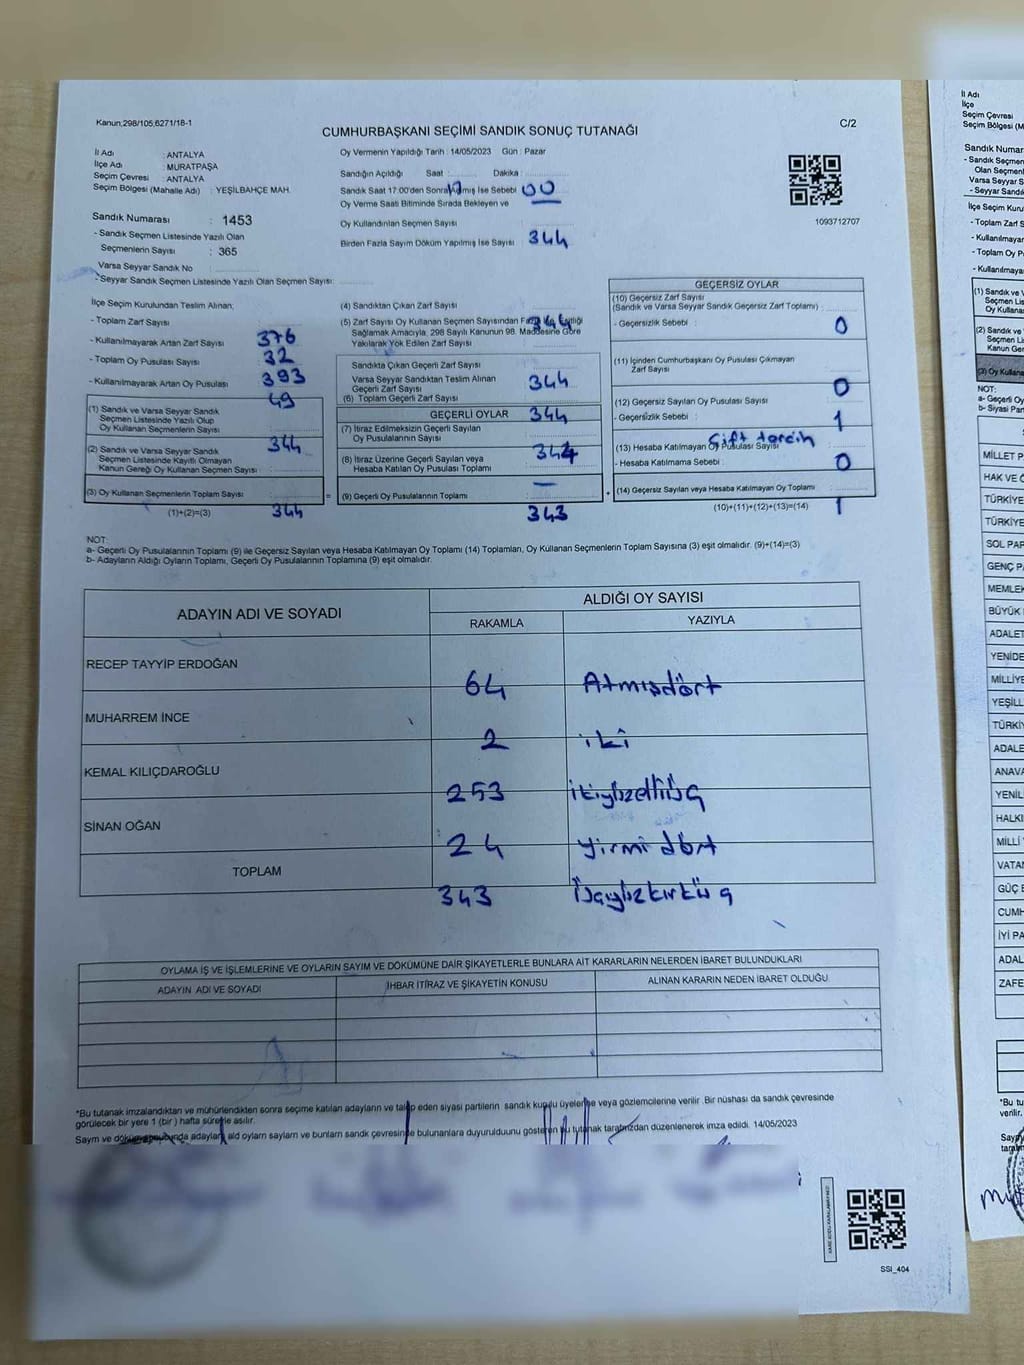 Kanun,298/105,6271/18-1
CUMHURBAŞKANI SEÇİMİ SANDIK SONUÇ TUTANAĞI
C/2
İl Adı : ANTALYA
İlçe Adı : MURATPAŞA
Seçim Çevresi : ANTALYA
Seçim Bölgesi (Mahalle Adı) : YEŞİLBAHÇE MAH.
Sandık Numarası : 1453
- Sandık Seçmen Listesinde Yazılı Olan
Seçmenlerin Sayısı : 365
Varsa Seyyar Sandık No
- Seyyar Sandık Seçmen Listesinde Yazılı Olan Seçmen Sayısı:
Oy Vermenin Yapıldığı Tarih : 14/05/2023 Gün : Pazar
Sandığın Açıldığı Saat : Dakika :
17 00
Sandık Saat 17:00'den Sonra Açılmış İse Sebebi
Oy Verme Saati Bitiminde Sırada Bekleyen ve
Oy Kullandırılan Seçmen Sayısı
Birden Fazla Sayım Döküm Yapılmış İse Sayısı 344
1093712707
İlçe Seçim Kurulundan Teslim Alınan;
- Toplam Zarf Sayısı 376
- Kullanılmayarak Artan Zarf Sayısı 32
- Toplam Oy Pusulası Sayısı 393
- Kullanılmayarak Artan Oy Pusulası 49
(1) Sandık ve Varsa Seyyar Sandık
Seçmen Listesinde Yazılı Olup
Oy Kullanan Seçmenlerin Sayısı 344
(2) Sandık ve Varsa Seyyar Sandık
Seçmen Listesinde Kayıtlı Olmayan
Kanun Gereği Oy Kullanan Seçmen Sayısı
(3) Oy Kullanan Seçmenlerin Toplam Sayısı 344
(1)+(2)=(3)
(4) Sandıktan Çıkan Zarf Sayısı 344
(5) Zarf Sayısı Oy Kullanan Seçmen Sayısından Fazla Eşitliği
Sağlamak Amacıyla, 298 Sayılı Kanunun 98. Maddesine Göre
Yakılarak Yok Edilen Zarf Sayısı
Sandıkta Çıkan Geçerli Zarf Sayısı 344
Varsa Seyyar Sandıktan Teslim Alınan
Geçerli Zarf Sayısı
(6) Toplam Geçerli Zarf Sayısı 344
GEÇERLİ OYLAR
(7) İtiraz Edilmeksizin Geçerli Sayılan
Oy Pusulalarının Sayısı 344
(8) İtiraz Üzerine Geçerli Sayılan veya
Hesaba Katılan Oy Pusulası Toplamı —
(9) Geçerli Oy Pusulalarının Toplamı 343
=
+
GEÇERSİZ OYLAR
(10) Geçersiz Zarf Sayısı
(Sandık ve Varsa Seyyar Sandık Geçersiz Zarf Toplamı)
- Geçersizlik Sebebi : 0
(11) İçinden Cumhurbaşkanı Oy Pusulası Çıkmayan
Zarf Sayısı 0
(12) Geçersiz Sayılan Oy Pusulası Sayısı
- Geçersizlik Sebebi : 1
Çift tercih
(13) Hesaba Katılmayan Oy Pusulası Sayısı
- Hesaba Katılmama Sebebi : 0
(14) Geçersiz Sayılan veya Hesaba Katılmayan Oy Toplamı
(10)+(11)+(12)+(13)=(14) 1
NOT:
a- Geçerli Oy Pusulalarının Toplamı (9) ile Geçersiz Sayılan veya Hesaba Katılmayan Oy Toplamı (14) Toplamları, Oy Kullanan Seçmenlerin Toplam Sayısına (3) eşit olmalıdır. (9)+(14)=(3)
b- Adayların Aldığı Oyların Toplamı, Geçerli Oy Pusulalarının Toplamına (9) eşit olmalıdır.
ADAYIN ADI VE SOYADI
ALDIĞI OY SAYISI
RAKAMLA YAZIYLA
RECEP TAYYİP ERDOĞAN 64 Atmışdört
MUHARREM İNCE 2 iki
KEMAL KILIÇDAROĞLU 253 ikiyüzelliüç
SİNAN OĞAN 24 yirmi dört
TOPLAM 343 üçyüzkırküç
OYLAMA İŞ VE İŞLEMLERİNE VE OYLARIN SAYIM VE DÖKÜMÜNE DAİR ŞİKAYETLERLE BUNLARA AİT KARARLARIN NELERDEN İBARET BULUNDUKLARI
ADAYIN ADI VE SOYADI İHBAR İTİRAZ VE ŞİKAYETİN KONUSU ALINAN KARARIN NEDEN İBARET OLDUĞU
*Bu tutanak imzalandıktan ve mühürlendikten sonra seçime katılan adayların ve takip eden siyasi partilerin sandık kurulu üyelerine veya gözlemcilerine verilir. Bir nüshası da sandık çevresinde
görülecek bir yere 1 (bir) hafta süreyle asılır.
Sayım ve döküm sonucunda adayların aldığı oyların sayıları ve bunların sandık çevresinde bulunanlara duyurulduğunu gösteren bu tutanak tarafımızdan düzenlenerek imza edildi. 14/05/2023
SSI_404
İl Adı
İlçe
Seçim Çevresi
Seçim Bölgesi (M
Sandık Numar
- Sandık Seçmen
Olan Seçmenl
Varsa Seyyar S
- Seyyar Sandık
İlçe Seçim Kuru
- Toplam Zarf S
- Kullanılmayar
- Toplam Oy P
- Kullanılmaya
(1) Sandık ve V
Seçmen Lis
Oy Kullana
(2) Sandık ve
Seçmen L
Kanun Ger
(3) Oy Kullana
NOT:
a- Geçerli Oy
b- Siyasi Par
MİLLET P
HAK VE Ö
TÜRKİYE
TÜRKİYE
SOL PAR
GENÇ PA
MEMLEK
BÜYÜK
ADALET
YENİDE
MİLLİYE
YEŞİLL
TÜRKİY
ADALE
ANAVA
YENİL
HALKI
MİLLİ
VATAN
GÜÇ B
CUMH
İYİ PA
ADAL
ZAFE
*Bu tu
verilir.
Sayım